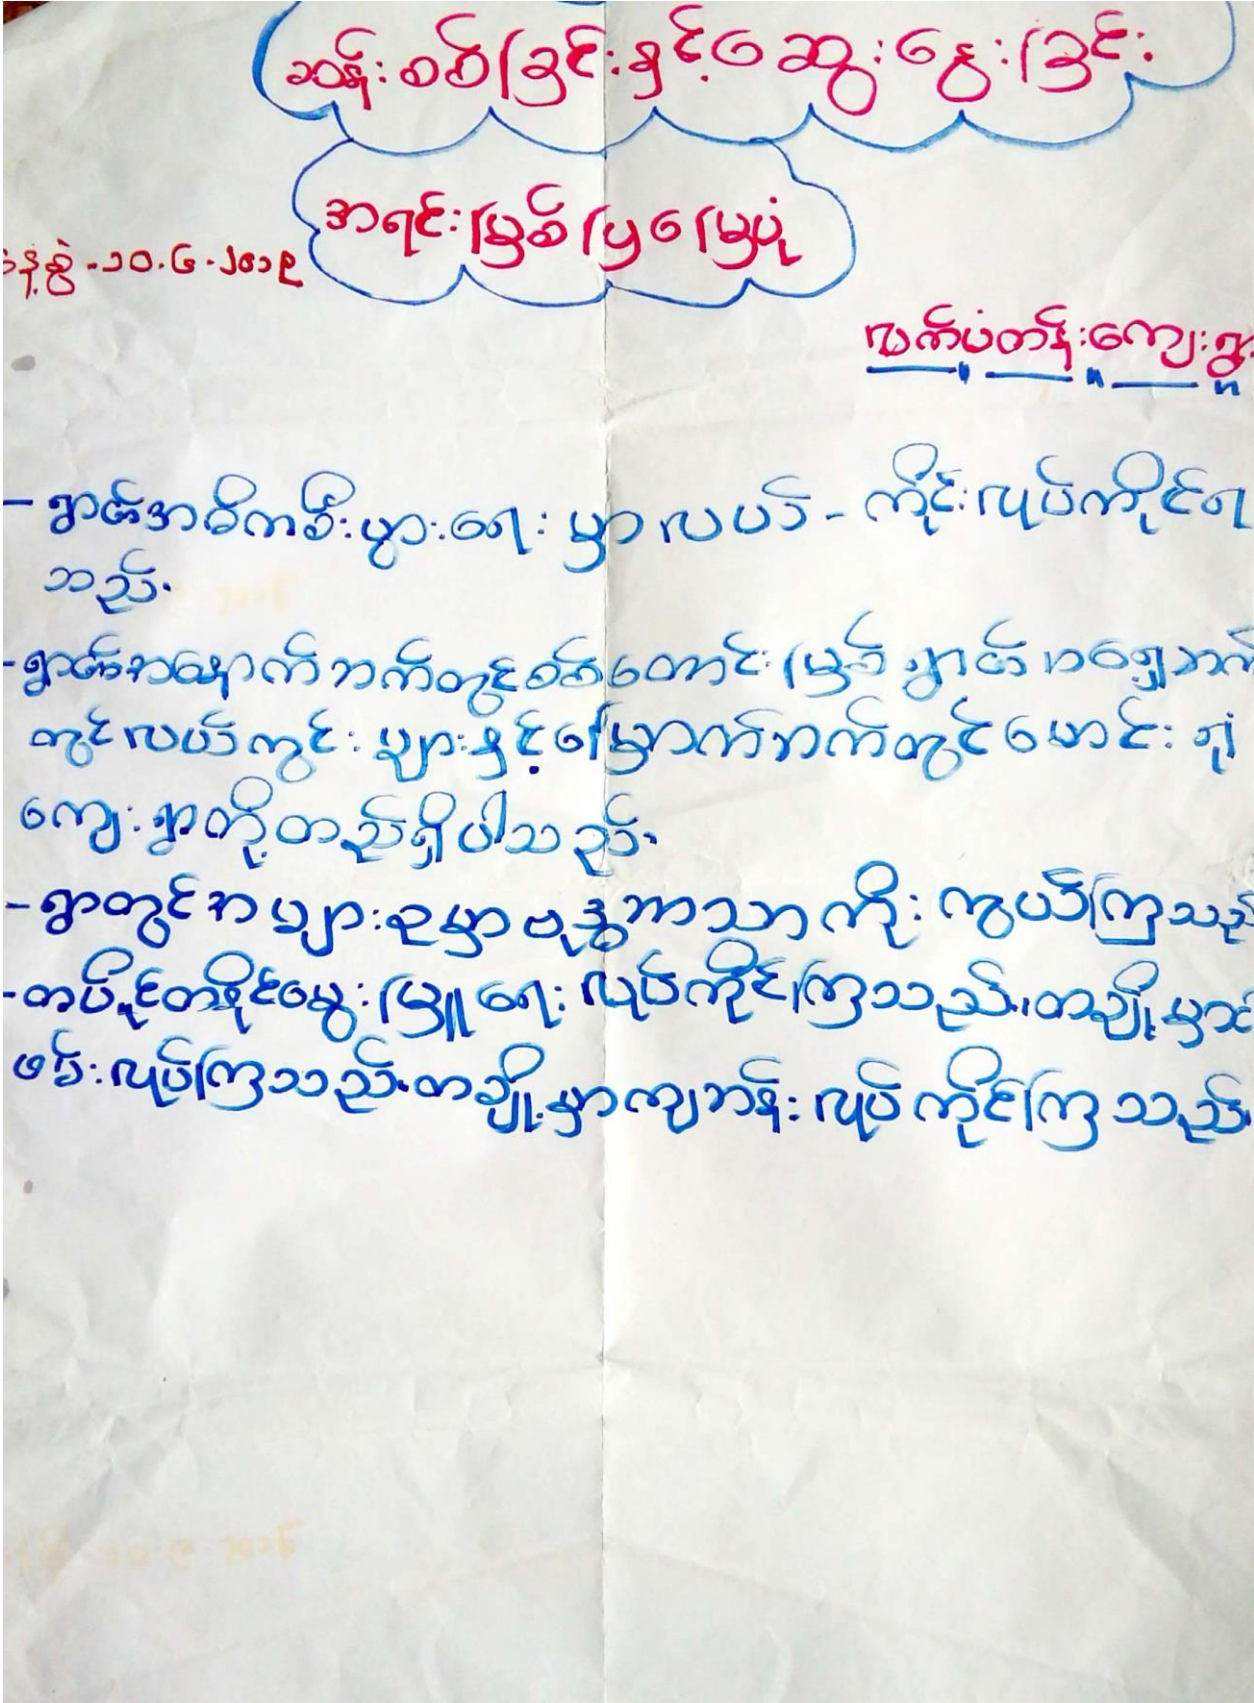 ဆန်းစစ်ခြင်းနှင့်ဆွေးနွေးခြင်း
အရင်းမြစ်ပြမြေပုံ
နေ့စွဲ - ၁၀.၆.၂၀၁၉
လက်ပံတန်းကျေးရွာ
- ရွာ၏အဓိကစီးပွားရေးမှာလယ် - ကိုင်းလုပ်ကိုင်ရ
သည်.
- ရွာ၏အနောက်ဘက်တွင်စစ်တောင်းမြစ် ရွာ၏အရှေ့ဘက်
တွင်လယ်ကွင်းများနှင့်မြောက်ဘက်တွင်မောင်းရုံ
ကျေးရွာတို့တည်ရှိပါသည်.
- ရွာတွင်အများစုမှာဗုဒ္ဓဘာသာကိုးကွယ်ကြသည်
- တပိုင်တနိုင်မွေးမြူရေးလုပ်ကိုင်ကြသည်. တချို့မှာငါး
ဖမ်းလုပ်ကြသည်. တချို့မှာကျဘန်းလုပ်ကိုင်ကြသည်.